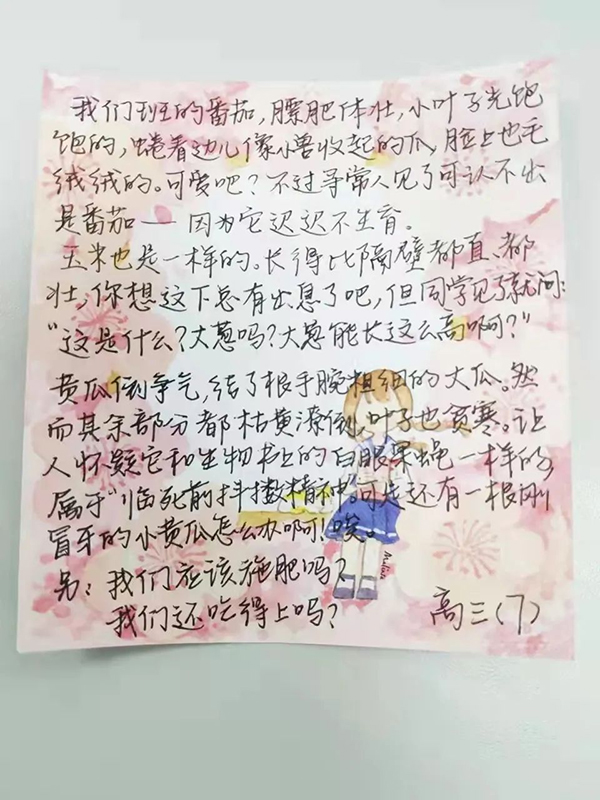 我们班的番茄，膘肥体壮，小叶子光饱
饱的，蜷着边儿像小兽收起的爪，脸上也毛
绒绒的。可爱吧？不过寻常人见了可认不出
是番茄——因为它迟迟不生育。
玉米也是一样的。长得比隔壁都直、都
壮，你想这下总有出息了吧，但同学见了就问：
“这是什么？大葱吗？大葱能长这么高啊？”
黄瓜倒争气，结了根手腕粗细的大瓜。然
而其余部分都枯黄潦倒，叶子也贫寒。让
人怀疑它和生物书上的白眼果蝇一样的，
属于“临死前抖擞精神”。可是还有一根刚
冒牙的小黄瓜怎么办啊！唉。
另：我们应该施肥吗？
我们还吃得上吗？
高三（7）